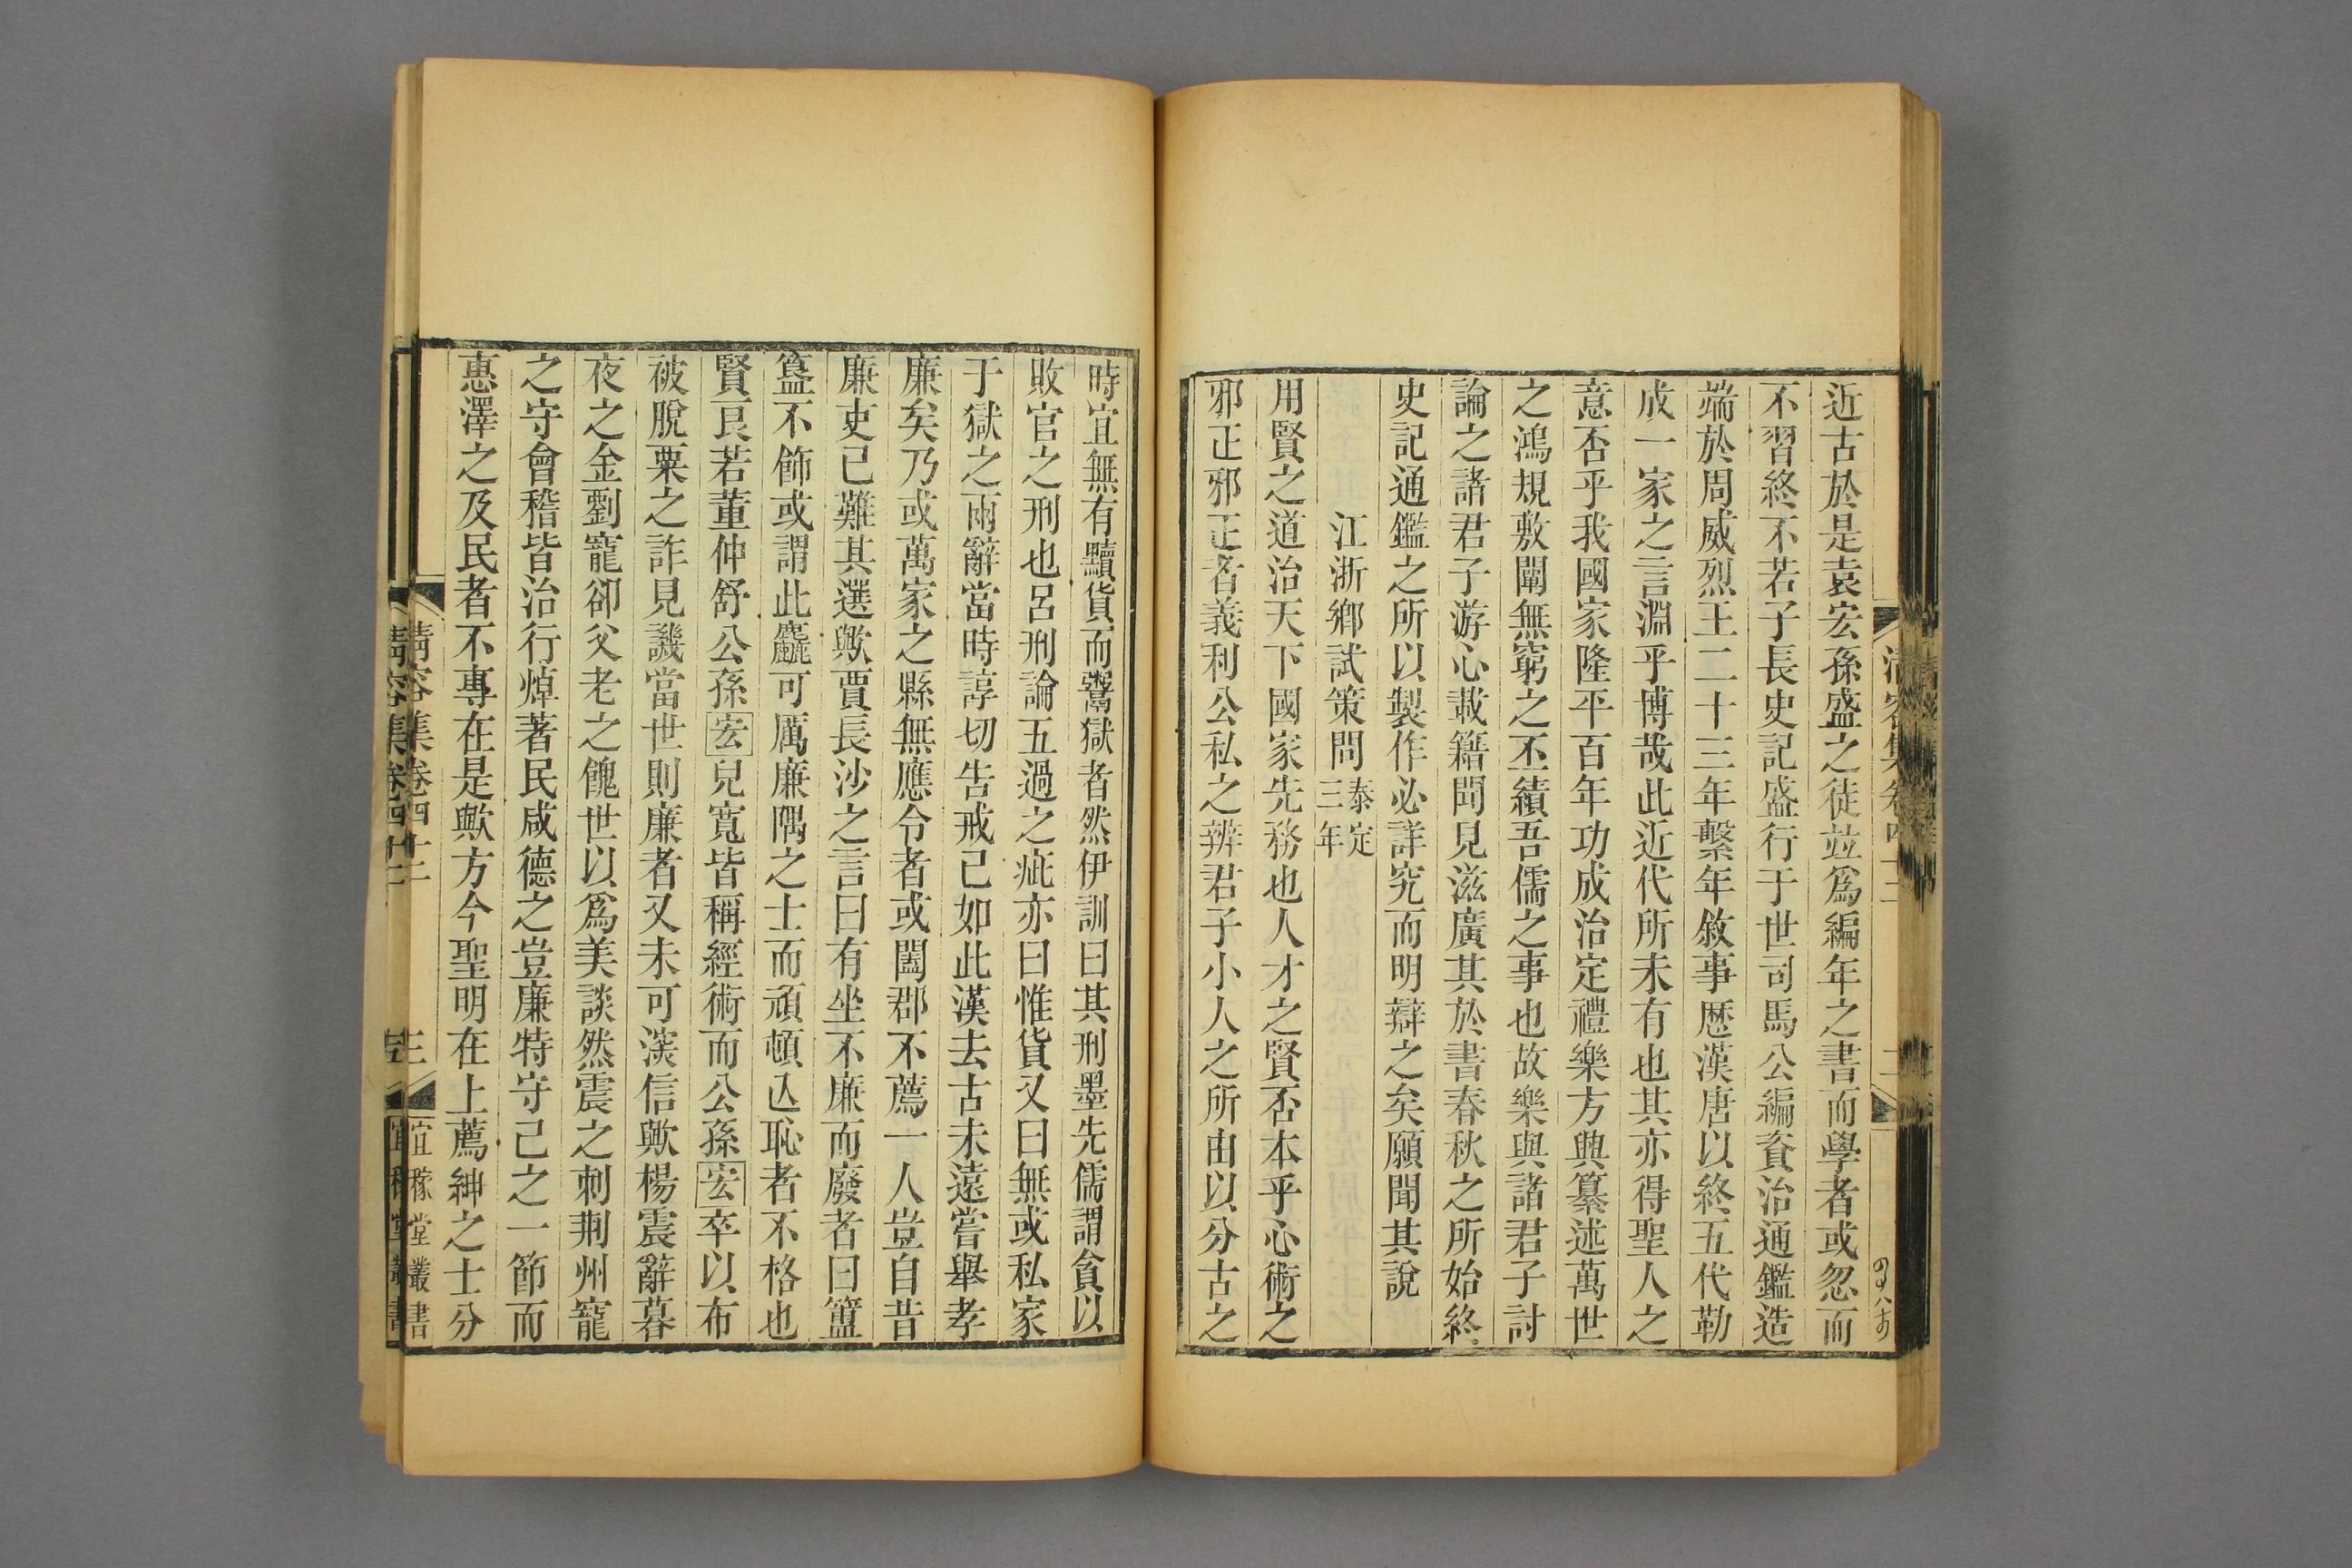 清容集卷四十二
二
近古於是袁宏孫盛之徒竝爲編年之書而學者或忽而
不習終不若子長史記盛行于世司馬公編資治通鑑造
端於周威烈王二十三年繫年敘事歷漢唐以終五代勒
成一家之言淵乎博哉此近代所未有也其亦得聖人之
意否乎我國家隆平百年功成治定禮樂方興纂述萬世
之鴻規敷闡無窮之丕績吾儒之事也故樂與諸君子討
論之諸君子游心載籍聞見滋廣其於書春秋之所始終
史記通鑑之所以製作必詳究而明辯之矣願聞其說
江浙鄉試策問泰定三年
用賢之道治天下國家先務也人才之賢否本乎心術之
邪正邪正者義利公私之辨君子小人之所由以分古之
時宜無有黷貨而鬻獄者然伊訓曰其刑墨先儒謂貪以
敗官之刑也呂刑論五過之疵亦曰惟貨又曰無或私家
于獄之兩辭當時諄切吿戒已如此漢去古未遠嘗舉孝
廉矣乃或萬家之縣無應令者或闔郡不薦一人豈自昔
廉吏已難其選歟賈長沙之言曰有坐不廉而廢者曰簠
簋不飾或謂此麤可厲廉隅之士而頑頓亾恥者不格也
賢良若董仲舒公孫宏兒寬皆稱經術而公孫宏卒以布
被脫粟之詐見譏當世則廉者又未可深信歟楊震辭暮
夜之金劉寵卻父老之餽世以爲美談然震之刺荆州寵
之守會稽皆治行焯著民咸德之豈廉特守己之一節而
惠澤之及民者不專在是歟方今聖明在上薦紳之士分
清容集卷四十二
三
宜稼堂叢書